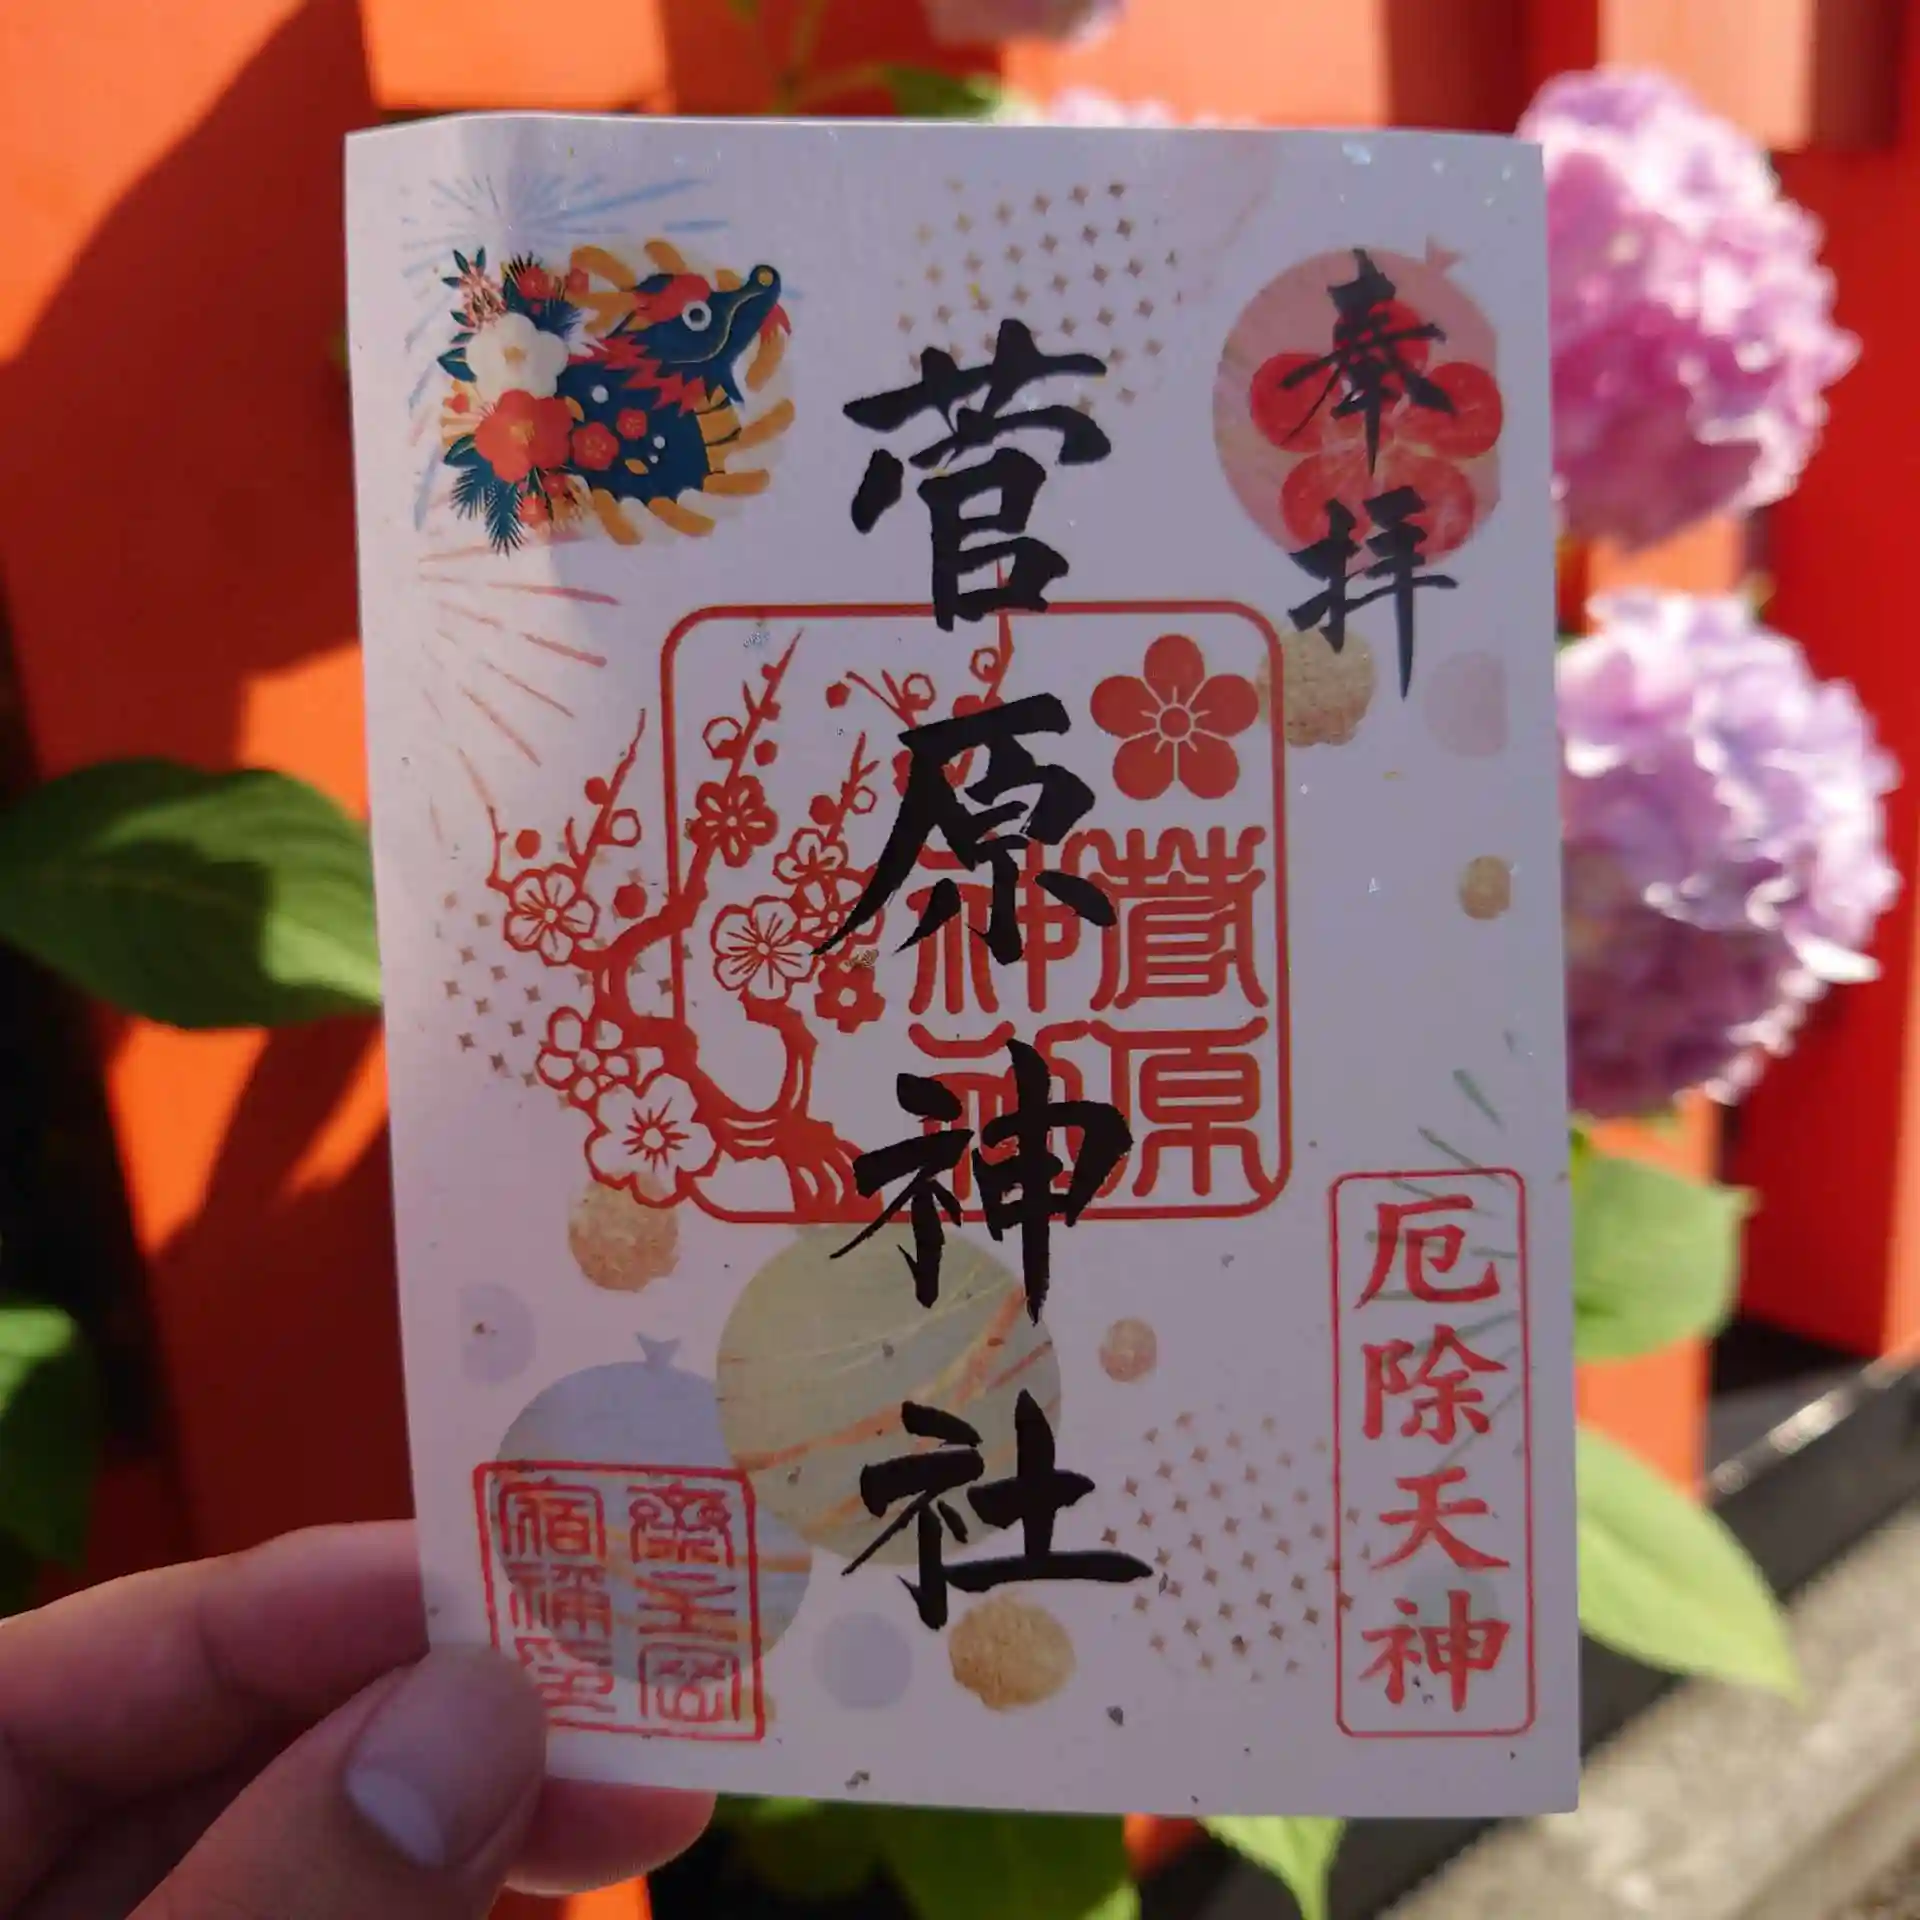 奉拝
菅原神社
菅原
神社
厄除天神